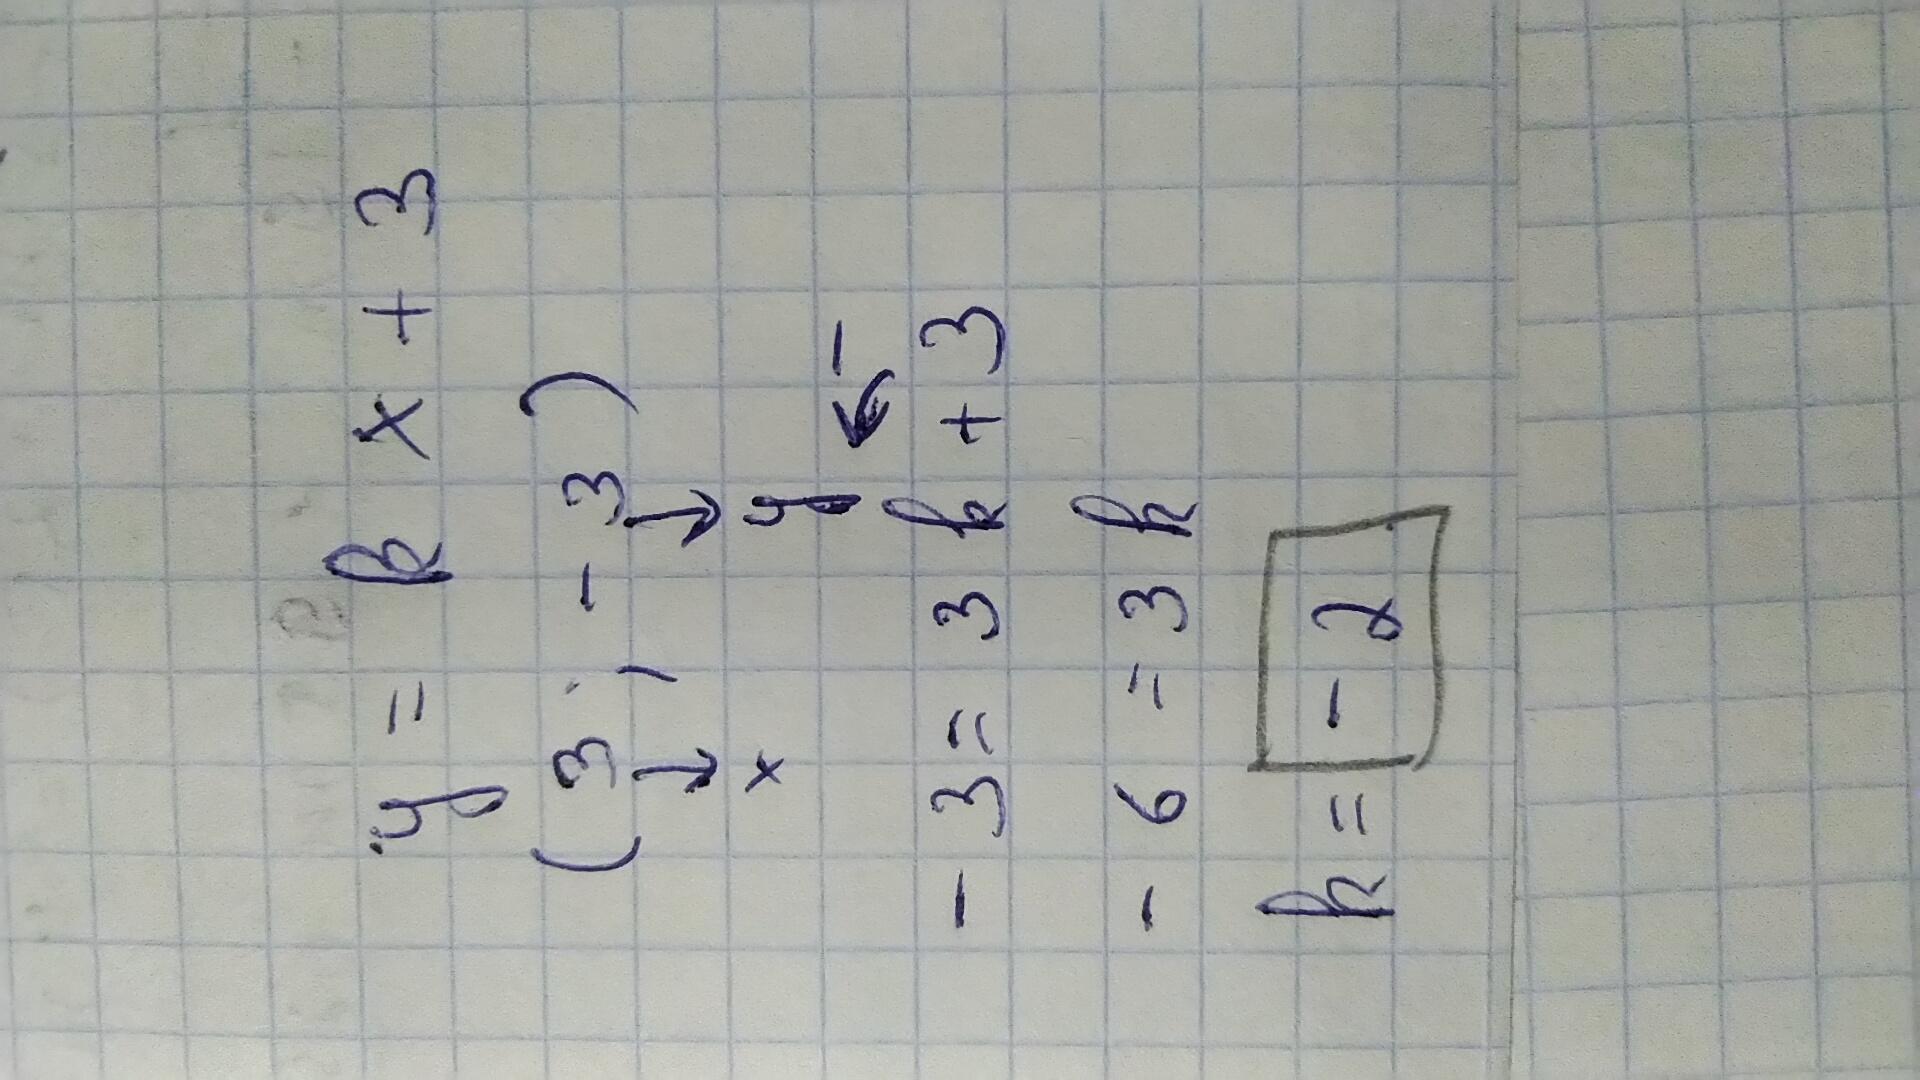 y = k x + 3
(3 ; -3)
x y
-
-3 = 3 k + 3
-6 = 3 k
k = -2